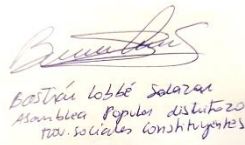 Bastián Lobbé Salazar
Asamblea Popular distrito 20
Mov. sociales constituyentes